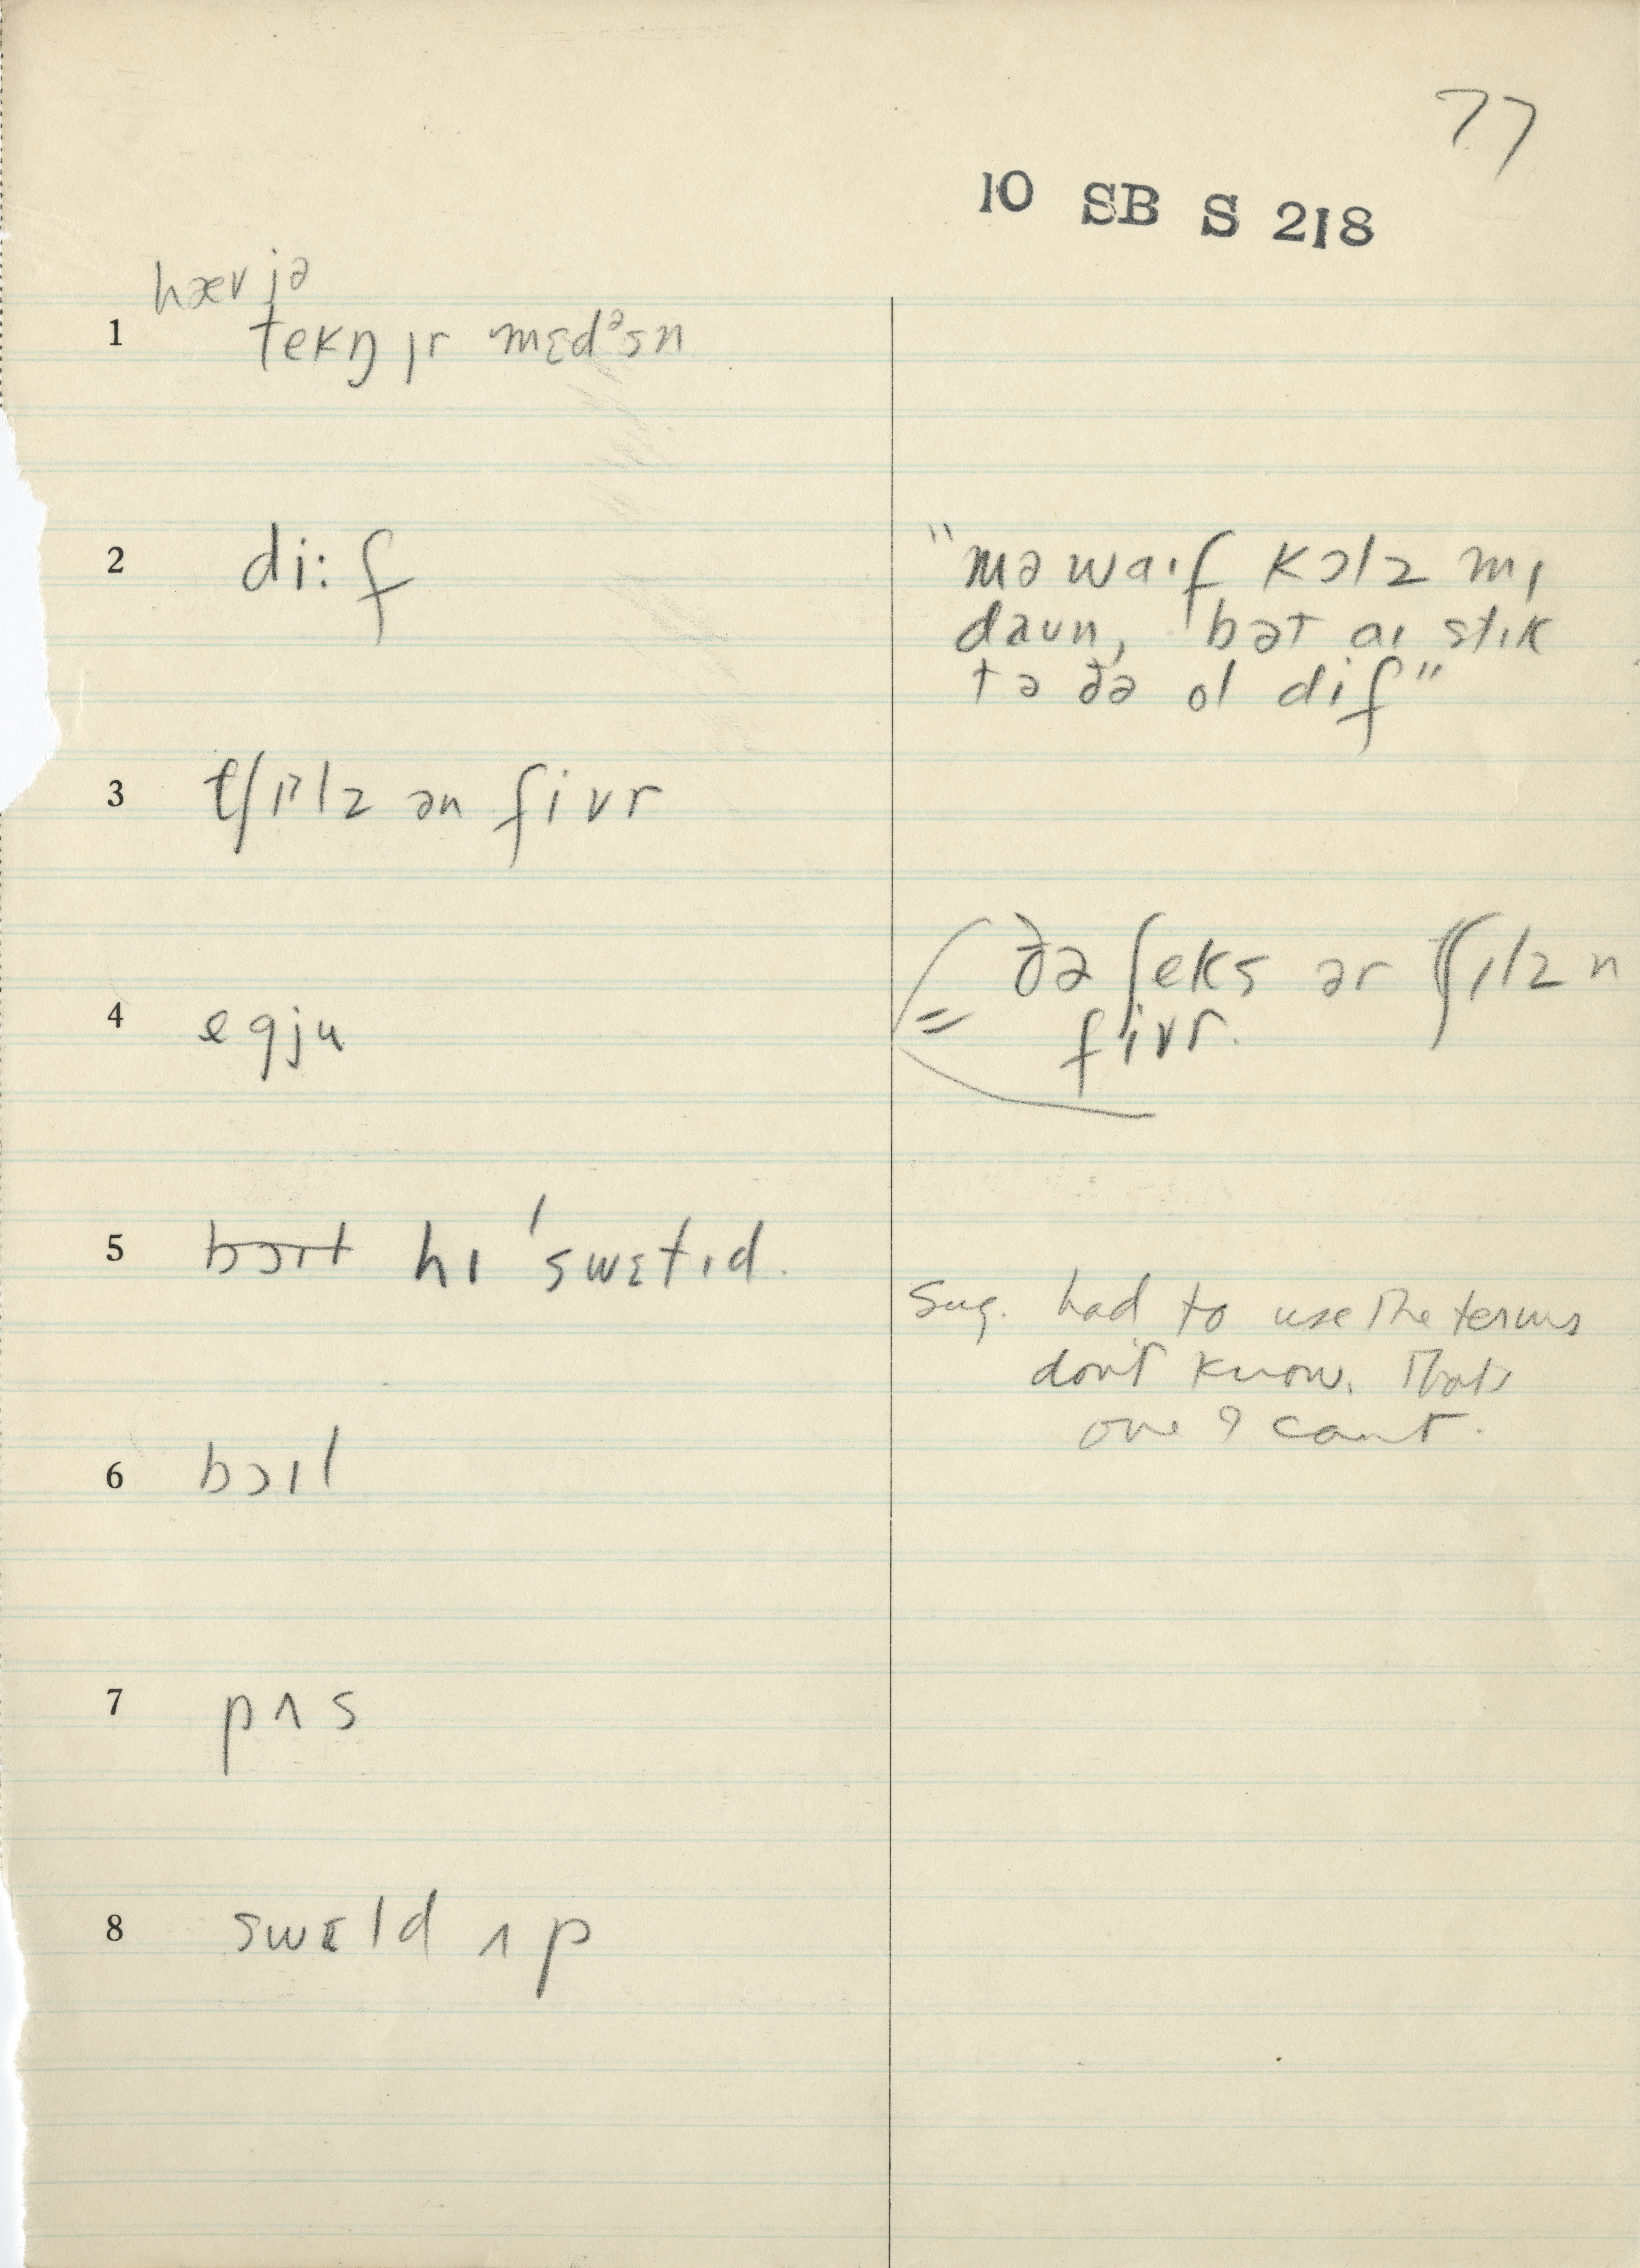 77
10 SB S 218
hæv jə
1 tekŋ ɪr mɛdᵊsn
2 di:f
"mə waɪf kɔlz mɪ
daun, bət aɪ stɪk
tə ðə ol dif"
3 tʃɪᵊlz ən fivr
4 egju
= ðə ʃeks ər tʃɪlz n
fivr.
5 bɔɪl hɪ 'swɛtɪd.
Sug. had to use the terms
don't know. That's
one I can't.
6 bɔɪl
7 pʌs
8 swɛld ʌp